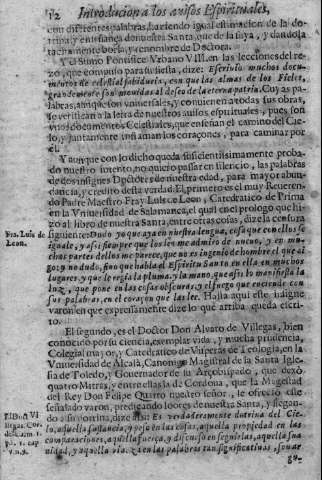 12 Introducion a los avisos Espirituales,
con diferentes palabras, haziendo igual estimacion de la do-
trina, y enseñança de nuestra Santa, que de la suya, y dandola
tacitamente borla, y renombre de Doctora.
Y el Sumo Pontifice Vrbano VIII. en las lecciones del re-
zo, que compuso para su fiesta, dize: Escriviò muchos docu-
mentos de celestial sabiduria, con que las almas de los Fieles,
grandemente son movidas al deseo de la eterna patria. Cuyas pa-
labras, aunque son vniversales, y convienen a todas sus obras,
se verifican a la letra de nuestros avisos espirituales, pues son
vnos documentos Celestiales, que enseñan el camino del Cie-
lo, y juntamente inflaman los coraçones, para caminar por
èl.
Y aunque con lo dicho queda suficientissimamente proba-
do nuestro intento, no quiero passar en silencio, las palabras
de dos insignes Doctores de nuestra edad, para mayor abun-
dancia, y credito desta verdad. El primero es el muy Reveren-
do Padre Maestro Fray Luis de Leon, Catedratico de Prima
en la Vniversidad de Salamanca, el qual en el prologo que hi-
zo al libro de nuestra Santa, entre otras cosas, dize la censura
Fra. Luis de
Leon.
siguiente: Dudo yo que aya en nuestra lengua, cosa que con ellos se
iguale, y assi siempre que los leo me admiro de nuevo, y en mu-
chas partes dellos me parece, que no es ingenio de hombre el que oi-
go; y no dudo, sino que habla el Espiritu Santo en ella en muchos
lugares, y que le regia la pluma, y la mano, que assi lo manifiesta la
luz, que pone en las cosas obscuras, y el fuego que enciende con
sus palabras, en el coraçon que las lee. Hasta aqui este insigne
varon en que expressamente dize lo que arriba queda escri-
to.
El segundo, es el Doctor Don Alvaro de Villegas, bien
conocido por su ciencia, exemplar vida, y mucha prudencia,
Colegial mayor, y Catedratico de Visperas de Teologia, en la
Vniversidad de Alcalà, Canonigo Magistral de la Santa Igle-
sia de Toledo, y Governador de su Arçobispado, que dexò
quatro Mitras, y entre ellas la de Cordova, que la Magestad
del Rey Don Felipe Quatro nuestro señor, le ofreciò este
señalado varon, predicando loores de nuestra Santa, y llegan-
do a su dotrina, dize assi: Es verdaderamente dotrina del Cie-
lo, aquella sustancia, y peso en las cosas, aquella propiedad en las
comparaciones, aquella fuerça, y discurso en seguirlas, aquella sua-
vidad, y aquella viveza en las palabras tan significativas, so